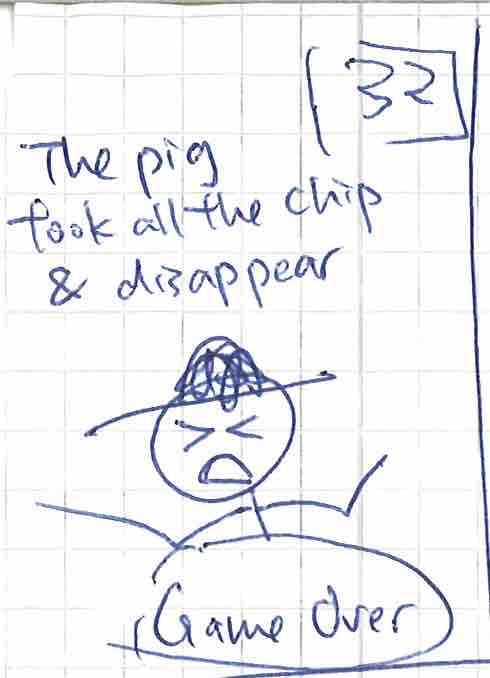 32
The pig
took all the chip
& disappear
Game Over